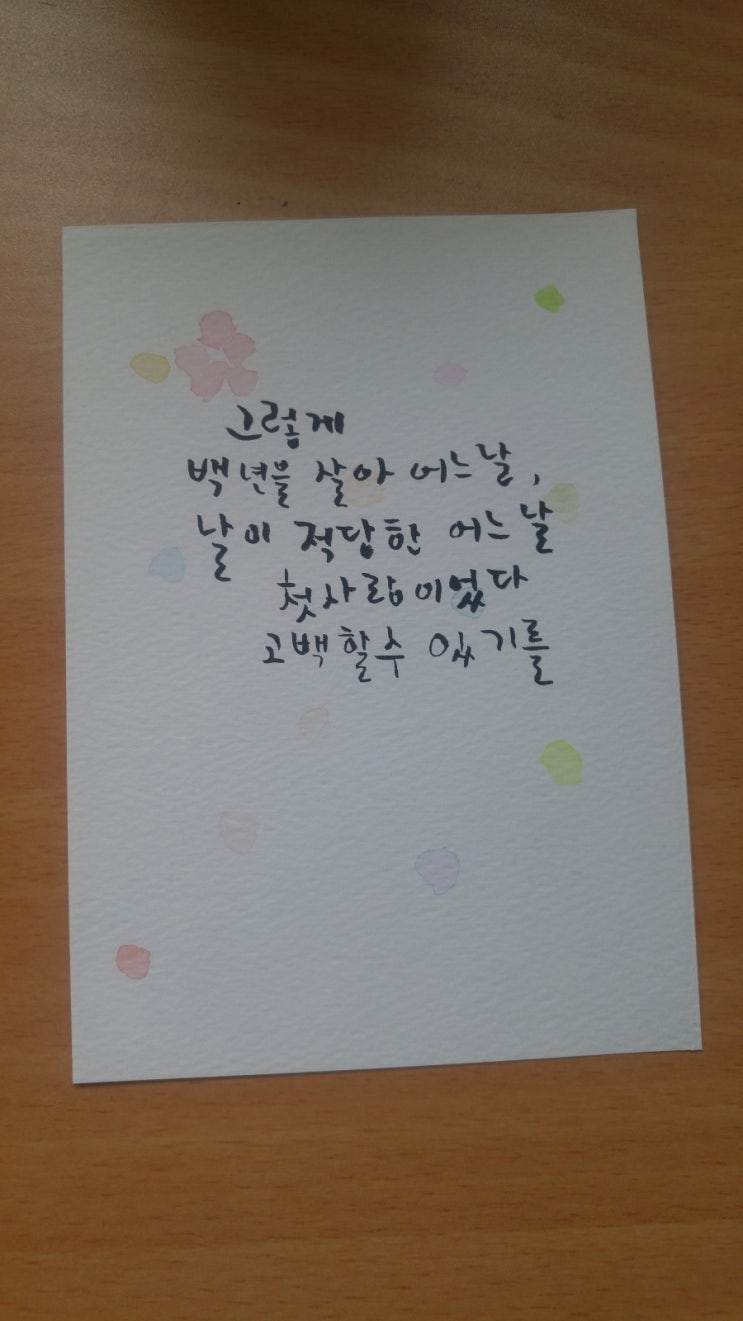 그렇게
백년을 살아 어느날,
날이 적당한 어느날
첫사랑이었다
고백할수 있기를